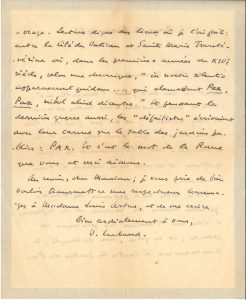 -orage. Lecture digne des lieux où je l'ai faite:
entre la Cité du Vatican et Sainte Marie Transté-
vérine où, dans les premières années du XIIIe
siècle, selon une chronique, "in noctis silentio
apparuerunt quidam .... qui clamabant Pax,
Pax, nihil aliud dicentes." Et pendant la
dernière guerre aussi, les "défaitistes" écrivaient
avec leur canne sur le sable des jardins pu-
blics: PAX. Et c'est le mot de la Rome
que vous et moi aimons.
Au revoir, cher Monsieur; je vous prie de bien
vouloir transmettre mes respectueux homma-
ges à Madame Louis Artus, et de me croire
bien cordialement à vous,
V. Larbaud.